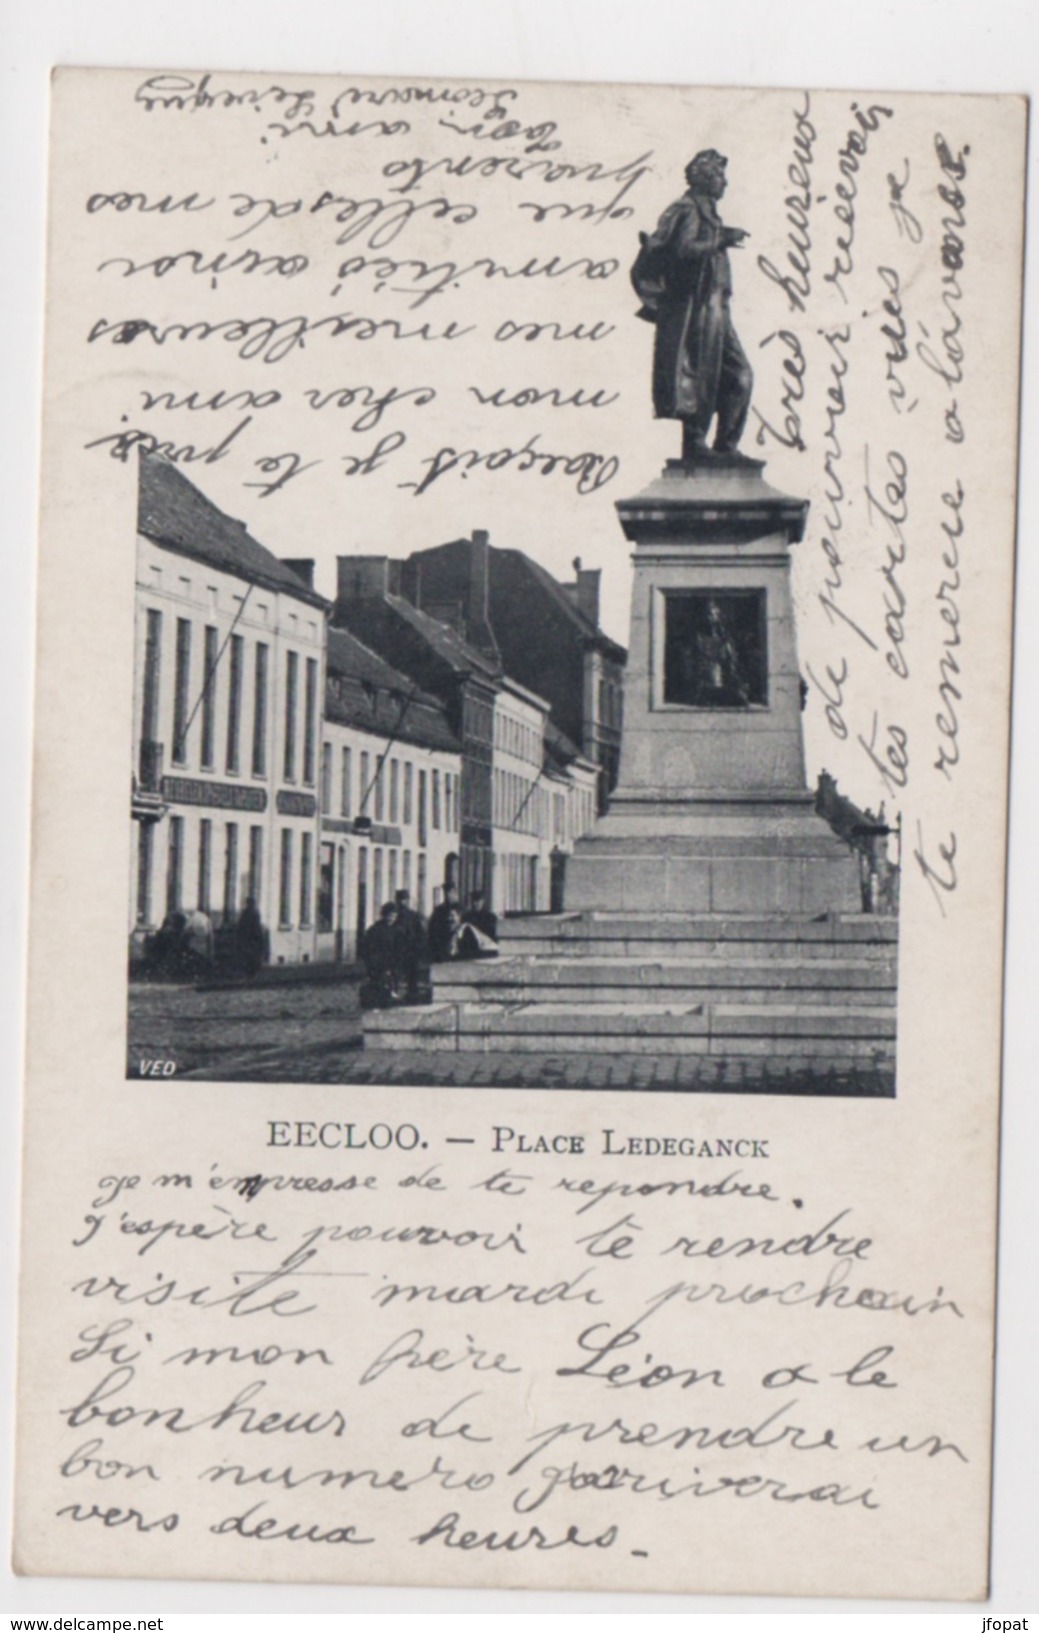 EECLOO. — PLACE LEDEGANCK
Je m'empresse de te repondre.
J'espère pouvoir te rendre
visite mardi prochain
Si mon frère Léon a le
bonheur de prendre un
bon numero j'arriverai
vers deux heures.
très heureux
de pouvoir recevoir
tes cartes vües je
te remercie a l'avance.
Reçoit je te prie
mon cher ami
mes meilleures
amitiés ainsi
que celles de mes
parents
Ton ami
VED
jfopat
www.delcampe.net